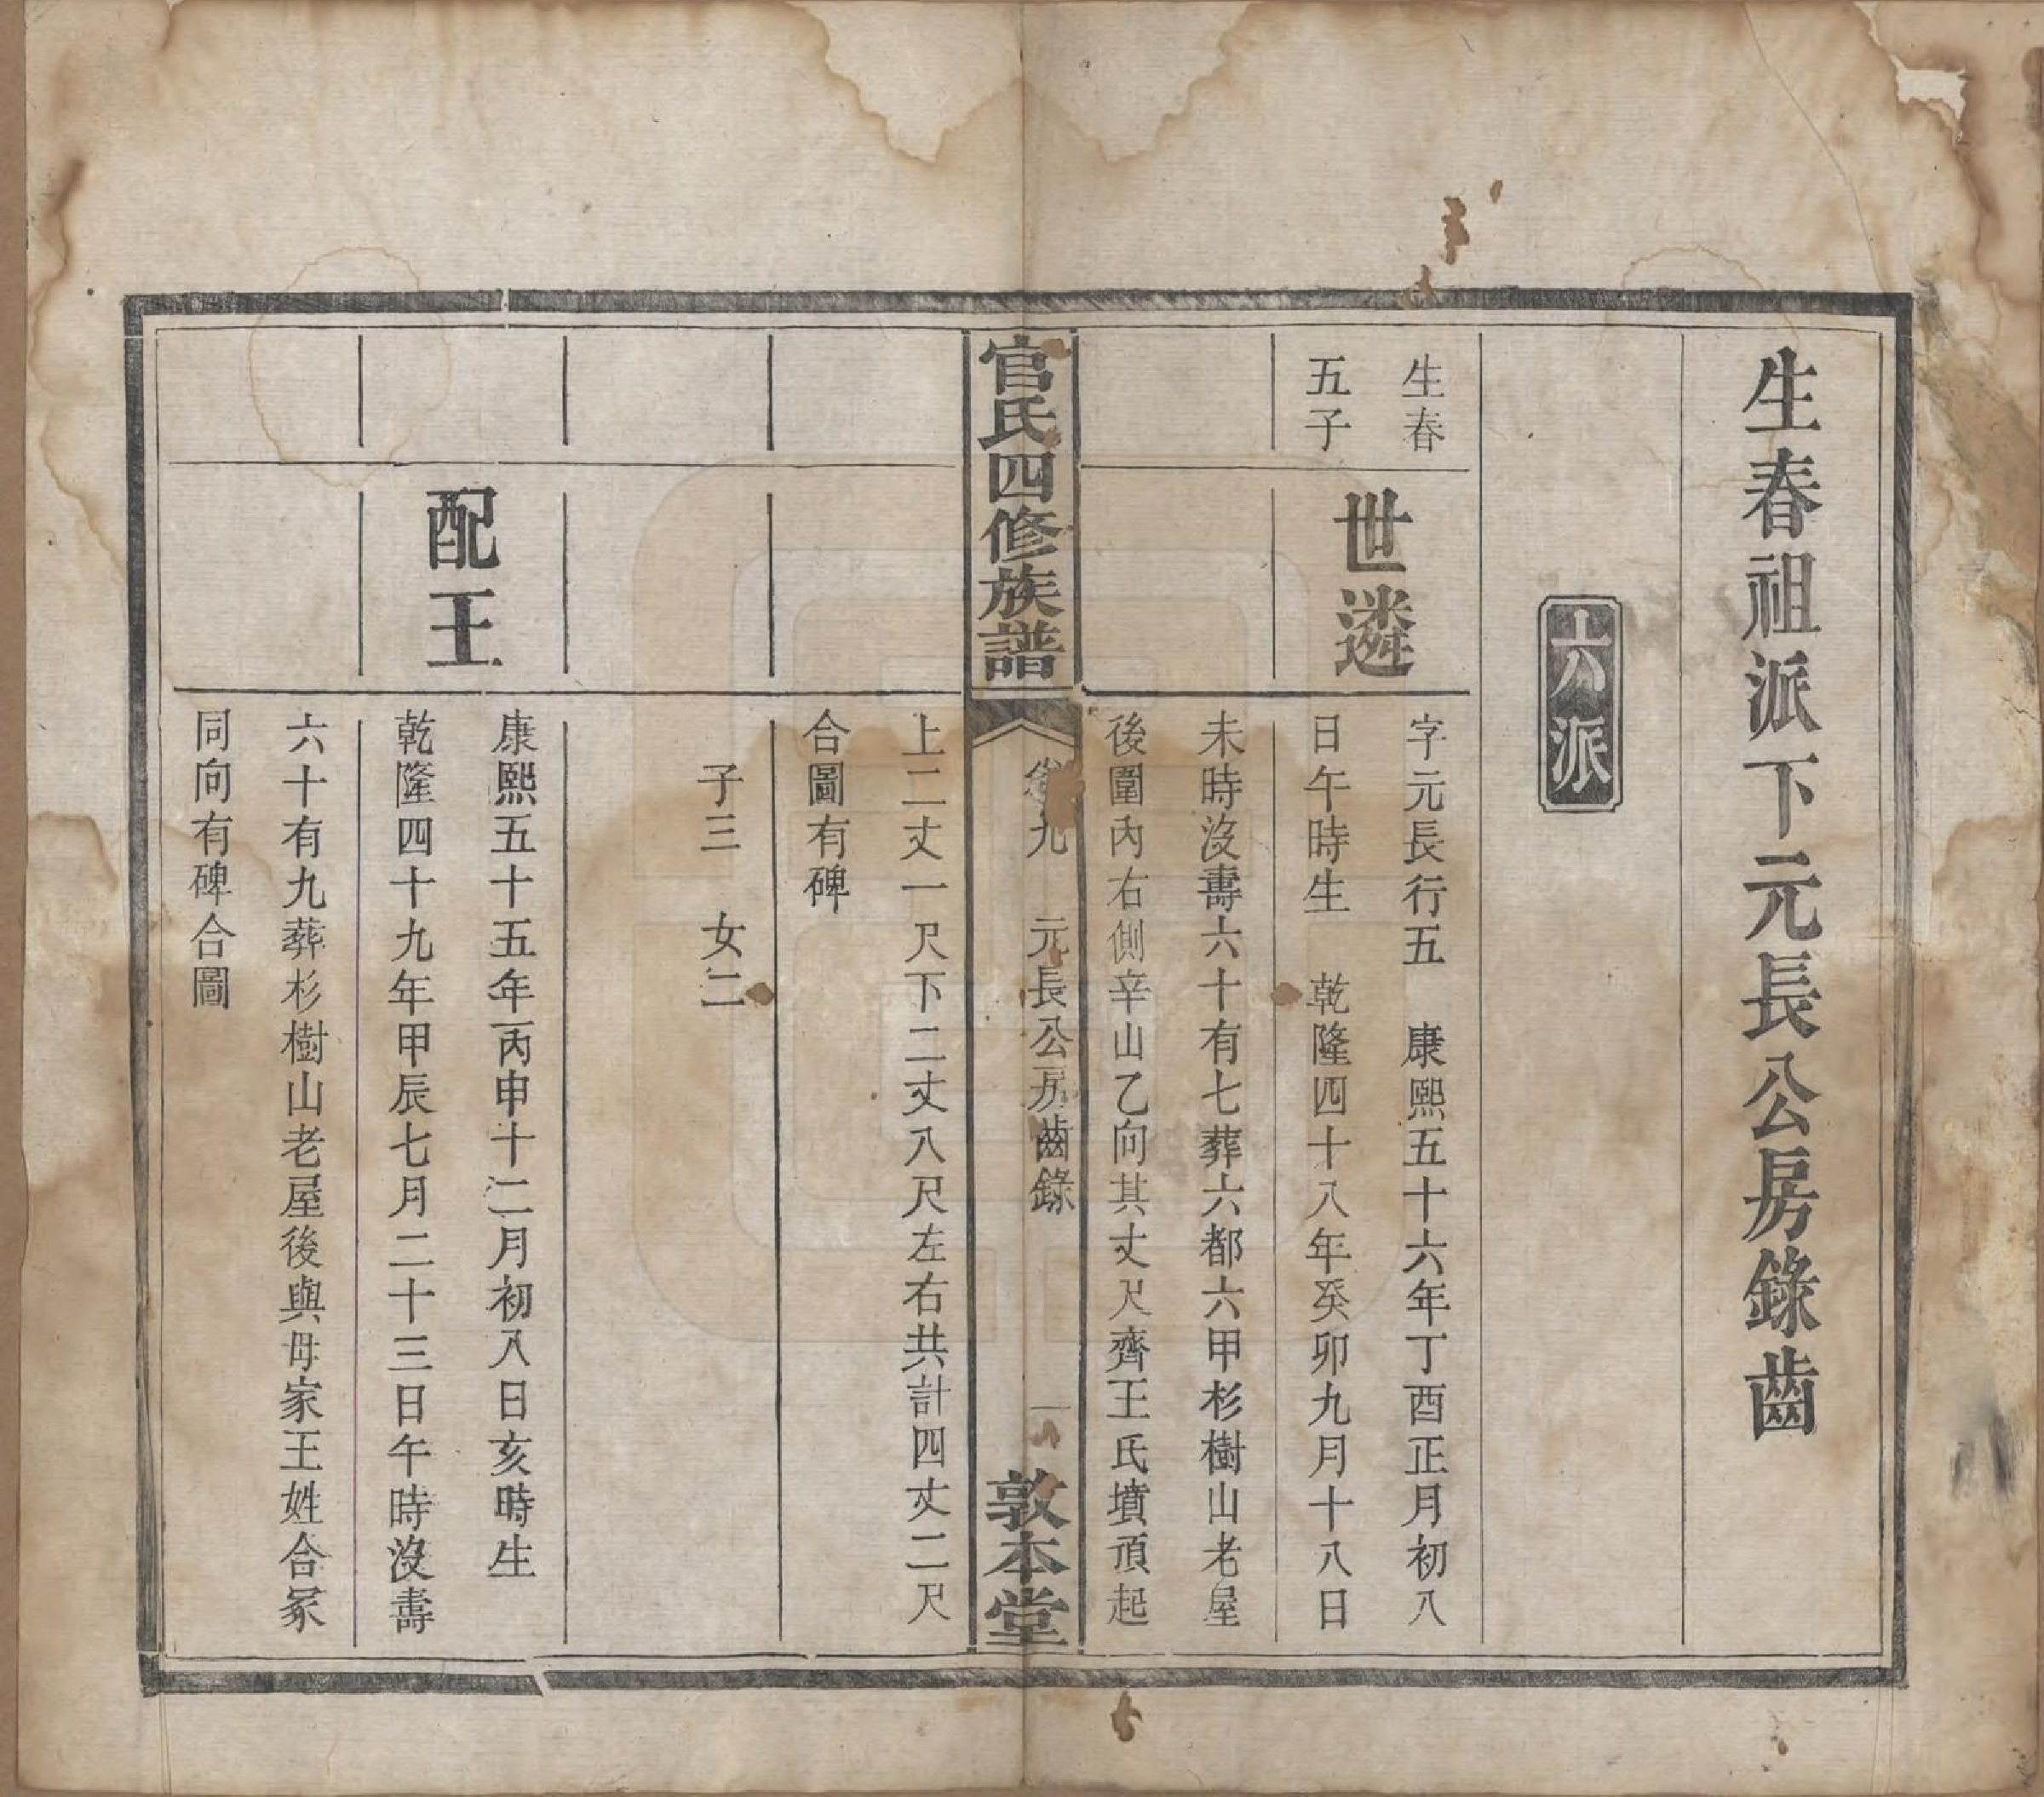 生春祖派下元長公房錄齒
六派
生春
五子
世遴
字元長行五　康熙五十六年丁酉正月初八
日午時生　乾隆四十八年癸卯九月十八日
未時沒壽六十有七葬六都六甲杉樹山老屋
後圍內右側辛山乙向其丈尺齊王氏墳頂起
官氏四修族譜
卷九　元長公房齒錄　一
敦本堂
上二丈一尺下二丈八尺左右共計四丈二尺
合圖有碑
子三　女二
配王
康熙五十五年丙申十二月初八日亥時生
乾隆四十九年甲辰七月二十三日午時沒壽
六十有九葬杉樹山老屋後與母家王姓合冢
同向有碑合圖